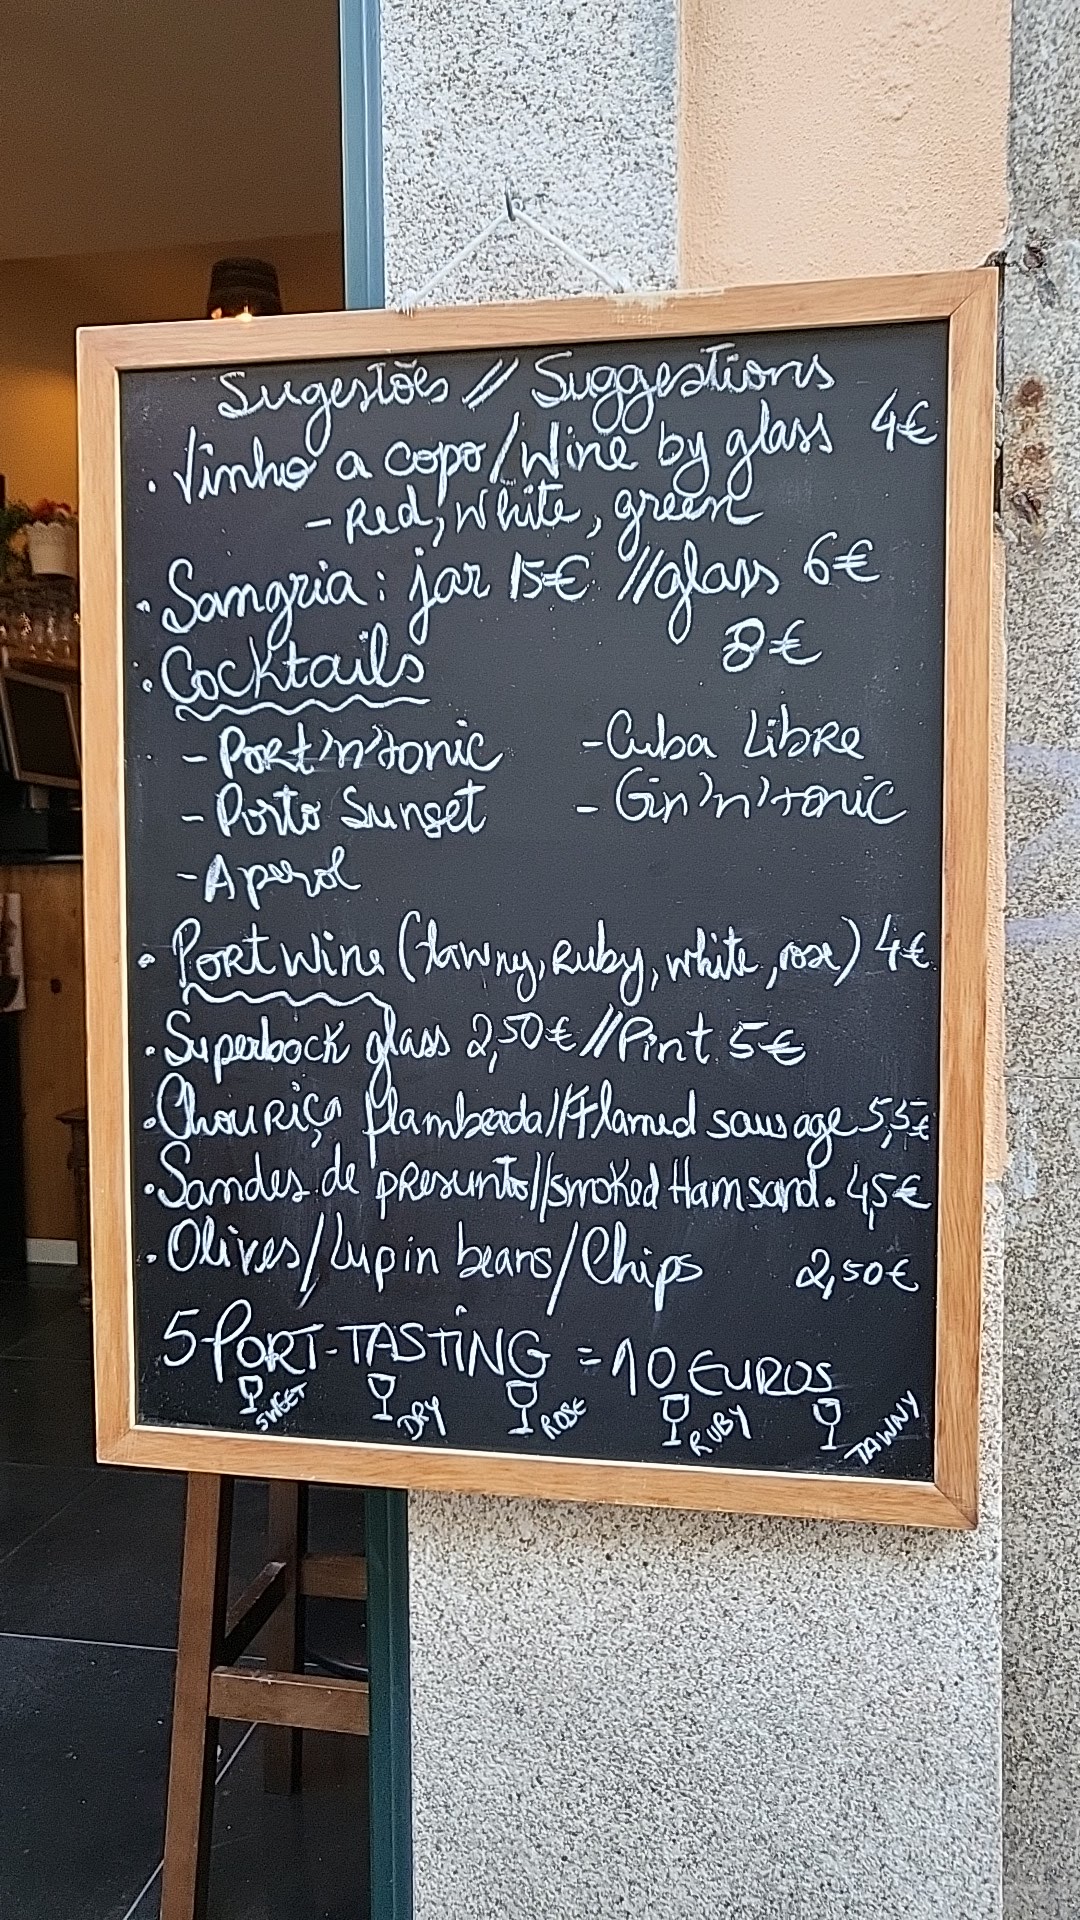 Sugestões // Suggestions
. Vinho a copo/Wine by glass 4€
- Red, White, green
. Sangria : jar 15€ //glass 6€
. Cocktails 8€
- Port'n'tonic - Cuba Libre
- Porto Sunset - Gin'n'tonic
- Aperol
. Port wine (tawny, Ruby, white, rose) 4€
. Superbock glass 2,50€ // Pint 5€
. Chouriça flambeada//Flamed sausage 5,5€
. Sandes de presunto//smoked Ham sand. 4,5€
. Olives/Lupin beans/Chips 2,50€
5-PORT-TASTING = 10 EUROS
SWEET DRY ROSE RUBY TAWNY